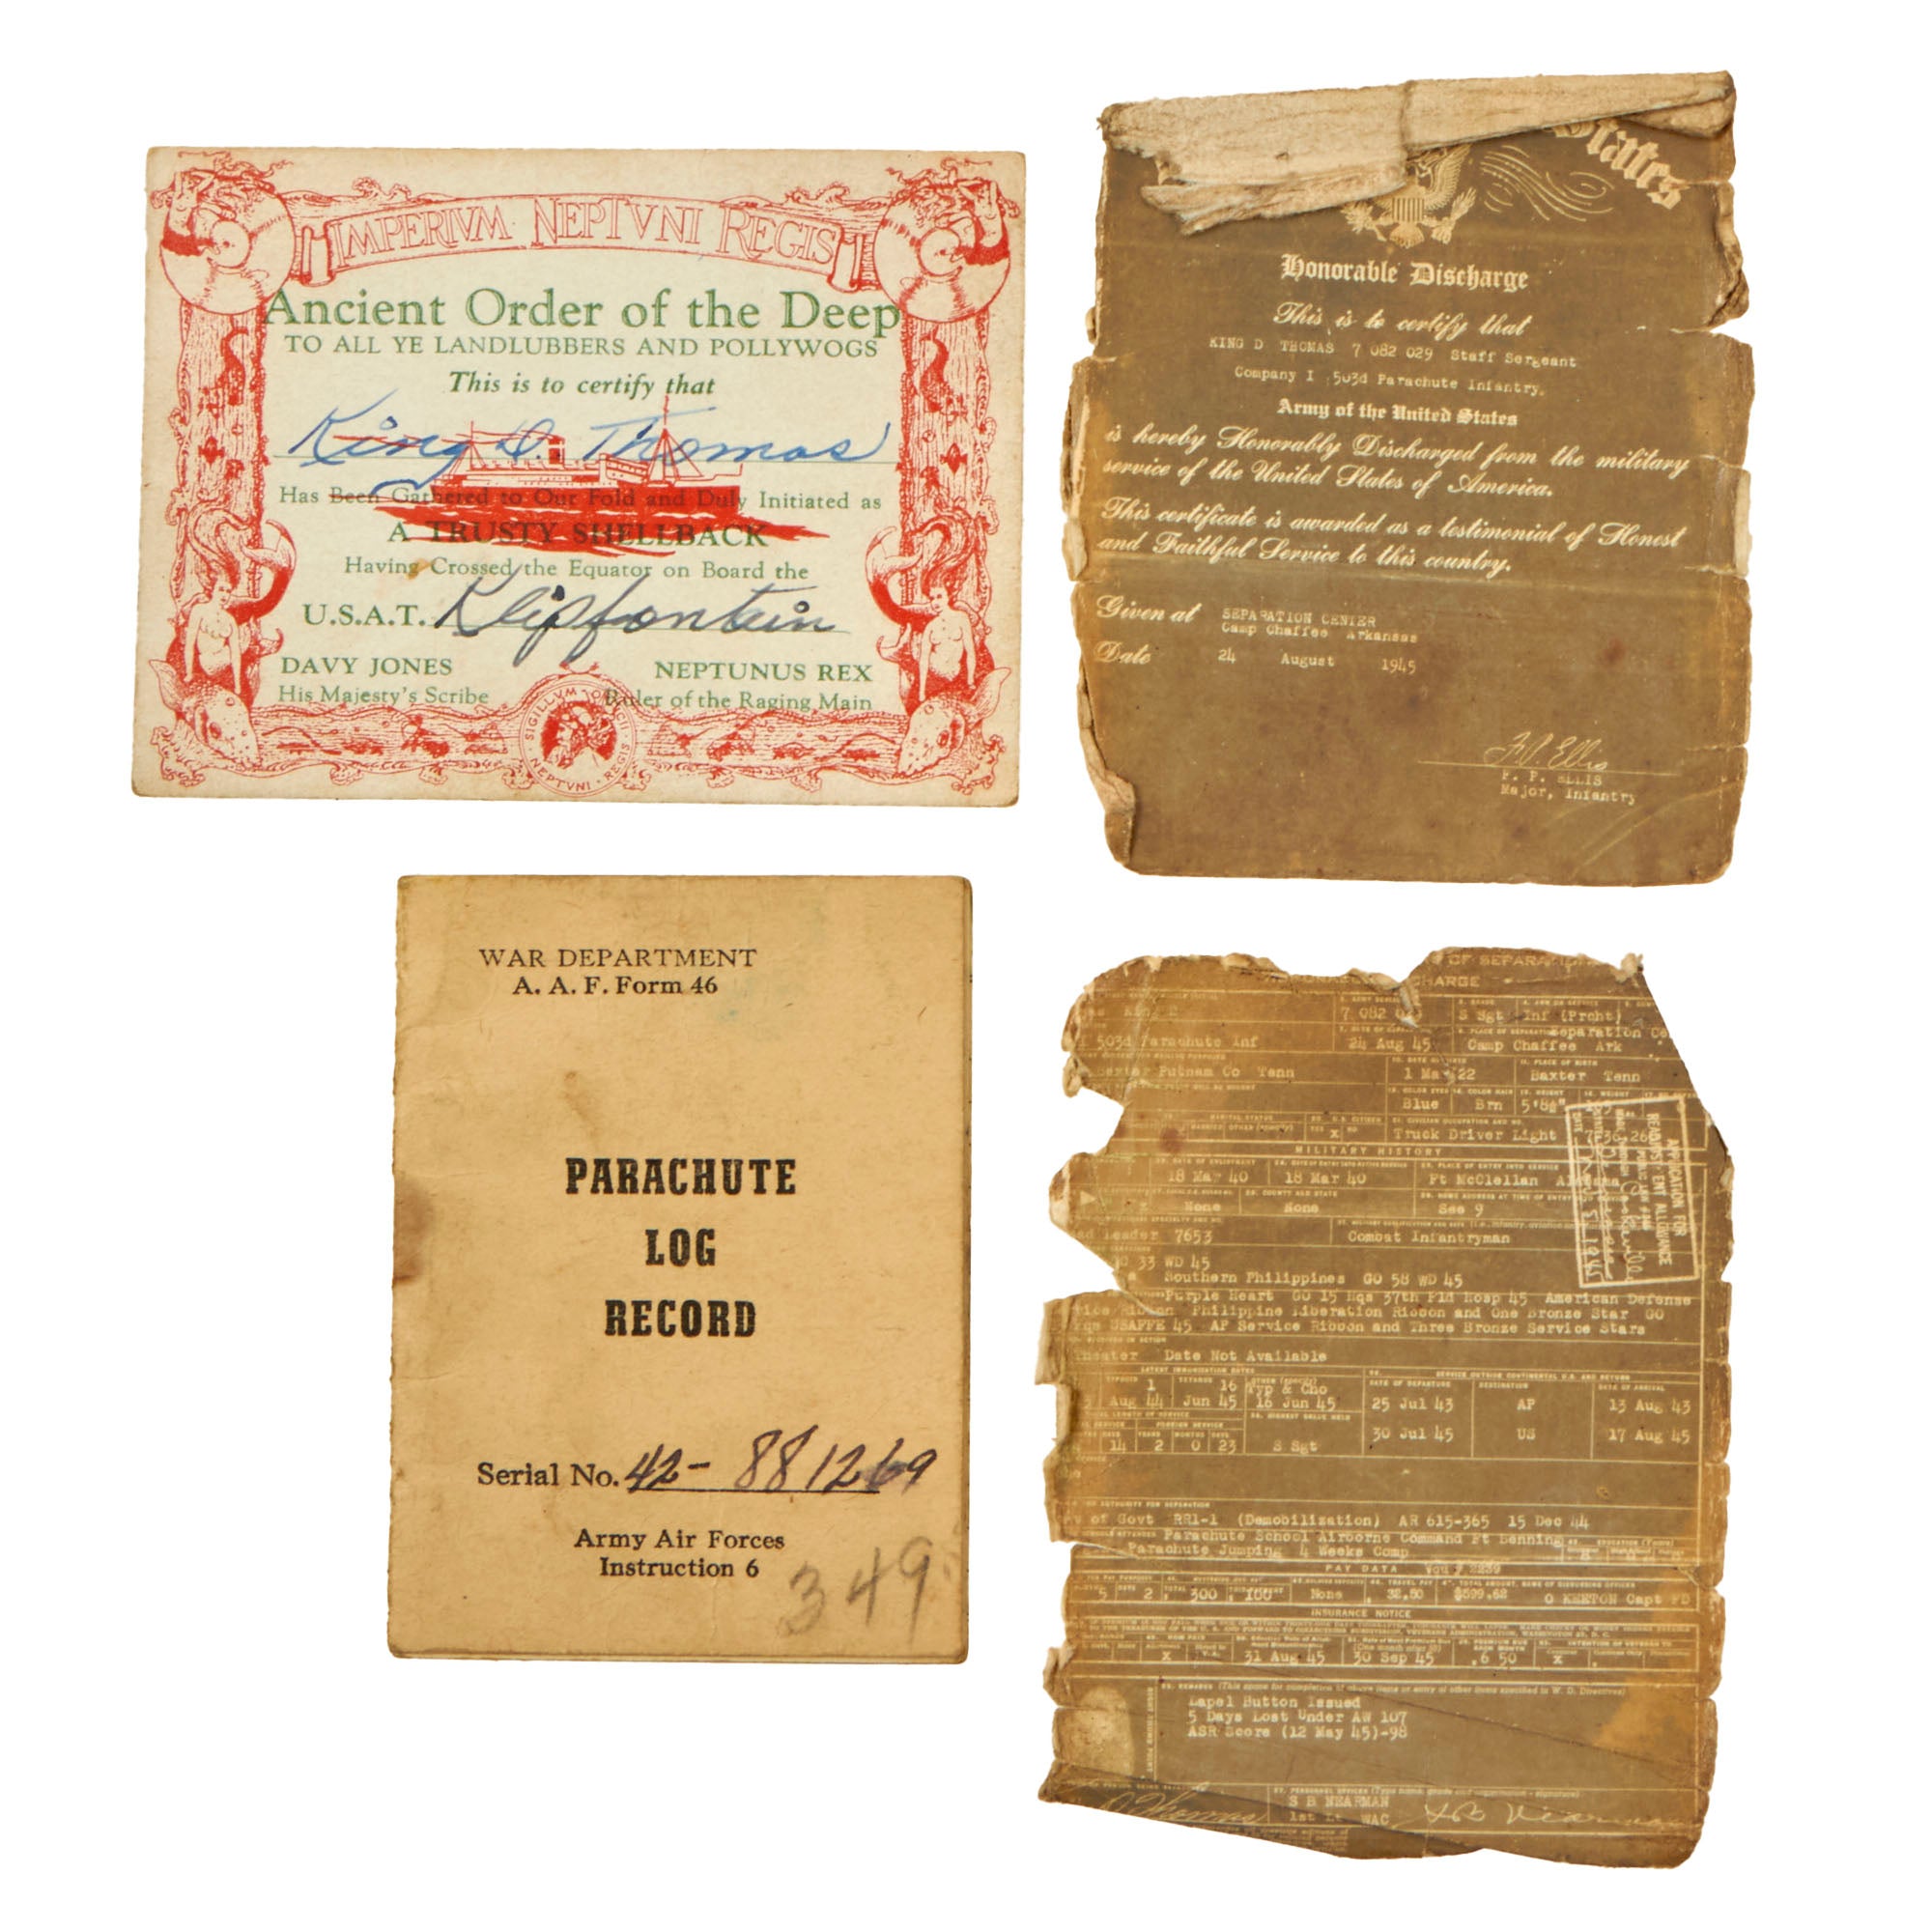 IMPERIVM NEPTVNI REGIS
Ancient Order of the Deep
TO ALL YE LANDLUBBERS AND POLLYWOGS
This is to certify that
King D. Thomas
Has Been Gathered to Our Fold and Duly Initiated as
A TRUSTY SHELLBACK
Having Crossed the Equator on Board the
U.S.A.T. Klipfontein
DAVY JONES NEPTUNUS REX
His Majesty's Scribe Ruler of the Raging Main
SIGILLVM NEPTVNI REGIS
States
Honorable Discharge
This is to certify that
KING D THOMAS 7 082 029 Staff Sergeant
Company I 503d Parachute Infantry.
Army of the United States
is hereby Honorably Discharged from the military
service of the United States of America.
This certificate is awarded as a testimonial of Honest
and Faithful Service to this country.
Given at SEPARATION CENTER
Camp Chaffee Arkansas
Date 24 August 1945
F. P. Ellis
F. P. ELLIS
Major, Infantry
WAR DEPARTMENT
A. A. F. Form 46
PARACHUTE
LOG
RECORD
Serial No. 42-881269
Army Air Forces
Instruction 6
349
OF SEPARA
CHARGE
King D 7 082 S Sgt Inf (Prcht)
503d Parachute Inf 24 Aug 45 Separation Ce
Camp Chaffee Ark
Putnam Co Tenn 1 Mar 22 Baxter Tenn
Blue Brn 5'8½"
X Truck Driver Light 7-36.260
MILITARY HISTORY
18 Mar 40 18 Mar 40 Ft McClellan Alabama
None None See 9
ad Leader 7653 Combat Infantryman
33 WD 45
Southern Philippines GO 58 WD 45
Purple Heart GO 15 Hqs 37th Fld Hosp 45 American Defense
vice Ribbon Philippine Liberation Ribbon and One Bronze Star GO
Hqs USAFFE 45 AP Service Ribbon and Three Bronze Service Stars
Theater Date Not Available
SERVICE OUTSIDE CONTINENTAL U.S. AND RETURN
DATE OF DEPARTURE DESTINATION DATE OF ARRIVAL
1 16 Typ & Cho
Aug 44 Jun 45 16 Jun 45 25 Jul 43 AP 13 Aug 43
30 Jul 45 US 17 Aug 45
14 2 0 23 S Sgt
of Govt RR1-1 (Demobilization) AR 615-365 15 Dec 44
Parachute School Airborne Command Ft Benning
Parachute Jumping 4 Weeks Comp 8
PAY DATA
5 2 300 100 None 32.50 O KEETON Capt FD
INSURANCE NOTICE
X 31 Aug 45 30 Sep 45 6 50 X
Lapel Button Issued
5 Days Lost Under AW 107
ASR Score (12 May 45)-98
S B NEARMAN
1st Lt WAC
Thomas S B Nearman
APPLICATION FOR
READJUSTMENT ALLOWANCE